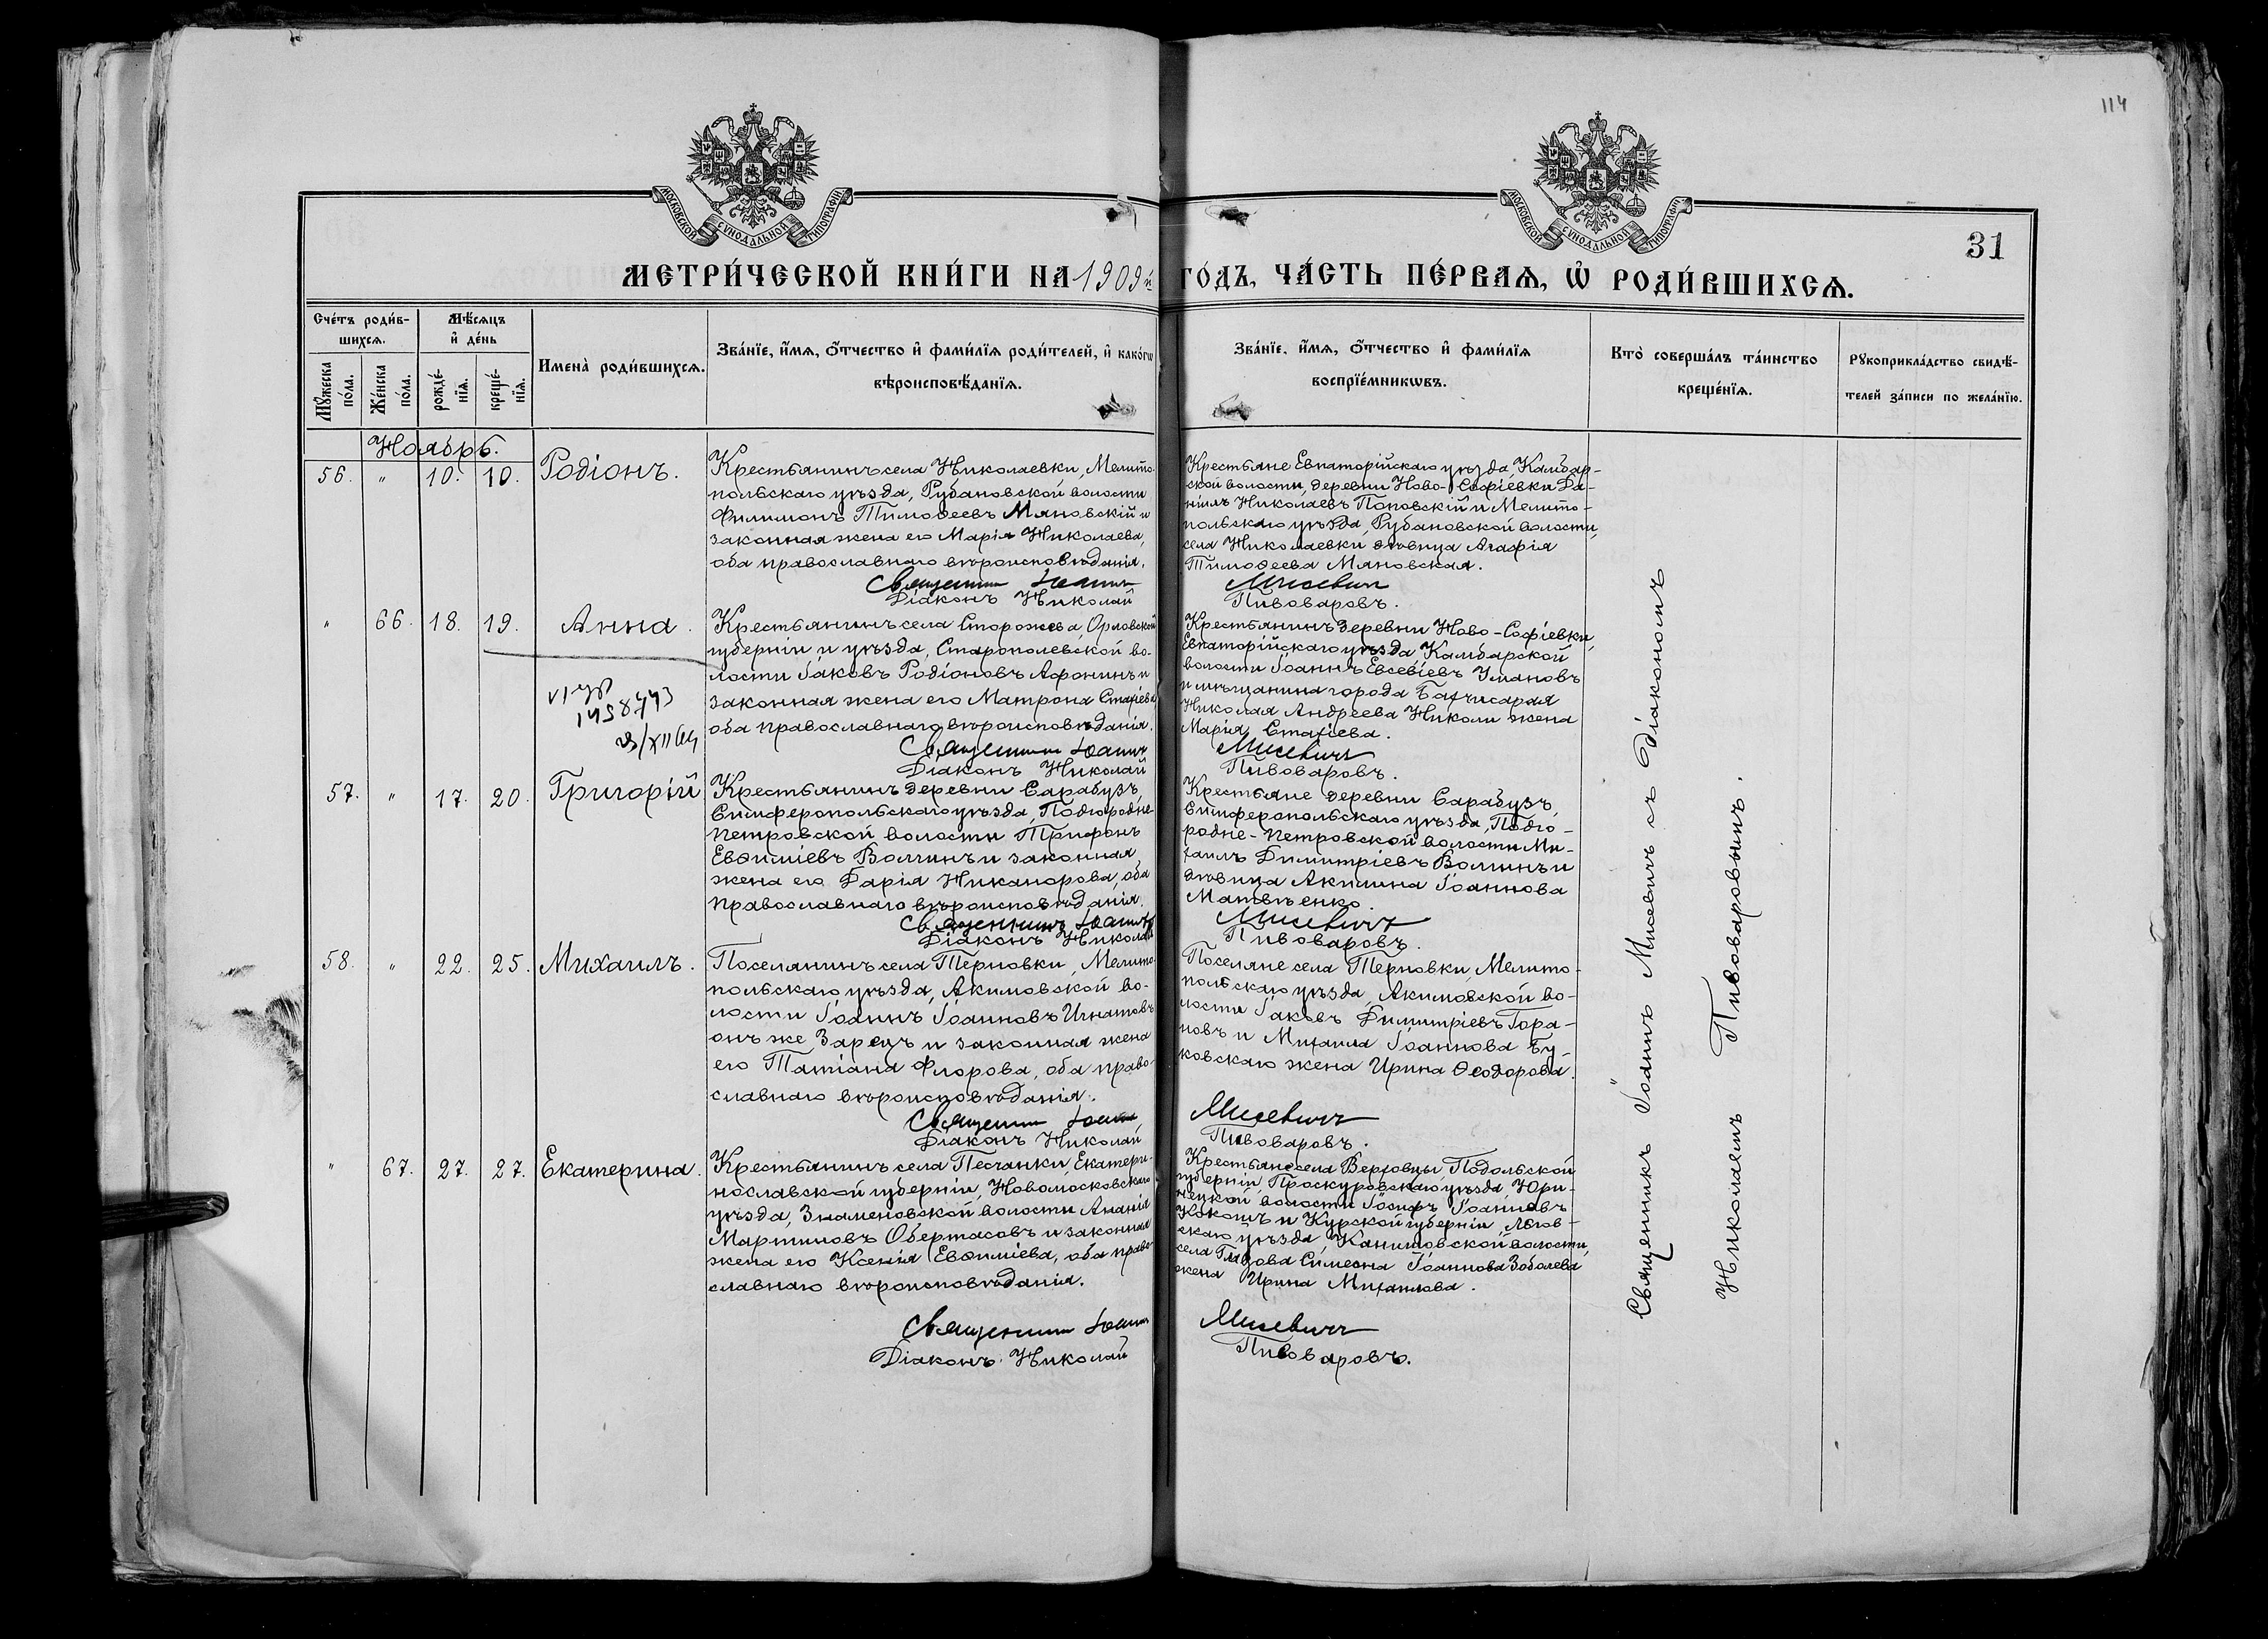 114
МОСКОВСКОЙ СѴНОДАЛЬНОЙ ТИПОГРАФІИ
МОСКОВСКОЙ СѴНОДАЛЬНОЙ ТИПОГРАФІИ
31
МЕТРИ́ЧЕСКОЙ КНИ́ГИ НА 1909й ГО́ДЪ, ЧА́СТЬ ПЕ́РВАѦ, Ѽ РОДИ́ВШИХСѦ.
Сче́тъ роди́в-
шихсѧ.
Мꙋ́жеска по́ла.
Же́нска по́ла.
Мѣ́сѧцъ и҆ де́нь
рожде́-
нїѧ.
креще́-
нїѧ.
И҆мена̀ роди́вшихсѧ.
Зва́нїе, и҆́мѧ, ѻ҆́тчество и҆ фами́лїѧ роди́телей, и҆ како́гѡ
вѣроисповѣ́данїѧ.
Зва́нїе, и҆́мѧ, ѻ҆́тчество и҆ фами́лїѧ
воспрїе́мникѡвъ.
Кто̀ соверша́лъ та́инство
креще́нїѧ.
Рꙋкоприкла́дство свидѣ́-
телей за́писи по жела́нїю.
Ноябрь.
56. " 10. 10. Родіонъ.
Крестьянинъ села Николаевки, Мелито-
польскаго уѣзда, Рубановской волости
Филимонъ Тимоѳеевъ Мяновскій и
законная жена его Марія Николаева,
оба православнаго вѣроисповѣданія.
Крестьяне Евпаторійскаго уѣзда, Камбар-
ской волости, деревни Ново-Софіевки Да-
ніилъ Николаевъ Поповскій и Мелито-
польскаго уѣзда, Рубановской волости,
села Николаевки дѣвица Агафія
Тимоѳеева Мяновская.
Священникъ Іоаннъ Мисевичъ
Діаконъ Николай Пивоваровъ.
" 66. 18. 19. Анна.
Крестьянинъ села Сторожева, Орловской
губерніи и уѣзда, Старополевской во-
лости Іаковъ Родіоновъ Афонинъ и
законная жена его Матрона Стахіева
оба православнаго вѣроисповѣданія.
Крестьянинъ деревни Ново-Софіевки,
Евпаторійскаго уѣзда, Камбарской
волости Іоаннъ Евсевіевъ Умановъ
и мѣщанина города Бахчисарая
Николая Андреева Николи жена
Марія Стахіева.
Священникъ Іоаннъ Мисевичъ
Діаконъ Николай Пивоваровъ.
57. " 17. 20. Григорій
Крестьянинъ деревни Сарабузъ,
Симферопольскаго уѣзда, Подгородне-
Петровской волости Трифонъ
Евѳиміевъ Волчинъ и законная
жена его Дарія Никанорова, оба
православнаго вѣроисповѣданія.
Крестьяне деревни Сарабузъ,
Симферопольскаго уѣзда, Подго-
родне-Петровской волости Ми-
хаилъ Димитріевъ Волчинъ и
дѣвица Акилина Іоаннова
Матвѣенко.
Священникъ Іоаннъ Мисевичъ
Діаконъ Николай Пивоваровъ.
58. " 22. 25. Михаилъ.
Поселянинъ села Терновки, Мелито-
польскаго уѣзда, Акимовской во-
лости Іоаннъ Іоанновъ Игнатовъ
онъ же Зарецъ и законная жена
его Татіана Флорова, оба право-
славнаго вѣроисповѣданія.
Поселяне села Терновки, Мелито-
польскаго уѣзда, Акимовской во-
лости Іаковъ Димитріевъ Гора-
новъ и Михаила Іоаннова Бу-
ковскаго жена Ирина Ѳеодорова.
Священникъ Іоаннъ Мисевичъ
Діаконъ Николай Пивоваровъ.
" 67. 27. 27. Екатерина.
Крестьянинъ села Песчанки, Екатери-
нославской губерніи, Новомосковскаго
уѣзда, Знаменовской волости Ананія
Мартиновъ Обертасовъ и законная
жена его Ксенія Евѳиміева, оба право-
славнаго вѣроисповѣданія.
Крестьяне села Верховцы, Подольской
губерніи, Проскуровскаго уѣзда, Юри-
нецкой волости Іосифъ Іоанновъ
и Курской губерніи, Льгов-
скаго уѣзда, волости,
села Симеона Іоаннова
жена Ирина Михаилова.
Священникъ Іоаннъ Мисевичъ
Діаконъ Николай Пивоваровъ.
Священникъ Іоаннъ Мисевичъ съ Діакономъ
Николаемъ Пивоваровымъ.